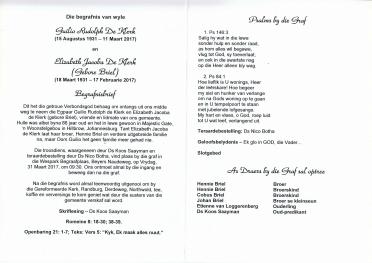 Die begrafnis van wyle
Guilio Rudolph De Klerk
(15 Augustus 1931 – 11 Maart 2017)
en
Elizabeth Jacoba De Klerk
(Gebore Briel)
(18 Maart 1931 – 17 Februarie 2017)
Begrafnisbrief
Dit het die getroue Verbondsgod behaag om onlangs uit ons midde
weg te neem die 2 Guilio Rudolph de Klerk en Elizabeth Jacoba
de Klerk (gebore Briel), vriende en familie van ons gemeente.
Hulle was albei 86 jaar oud en het in lewe gewoon in Majestic Gate,
'n Woonstelgebou in Hillbrow, Johannesburg. Tant Elizabeth Jacoba
de Klerk laat haar broer, Hennie Briel en verdere uitgebreide familie
na, maar Oom Guilio het geen familie meer gehad nie.
Die troosdiens, waargeneem deur Ds Koos Saayman en
teraardebestelling deur Ds Nico Botha, vind plaas by die graf in
die Wespark Begraafplaas, Beyers Naudeweg, op Vrydag,
31 Maart 2017, om 09:30. Ons ontmoet almal by die ingang en
beweeg dan na die graf.
Na die begrafnis word almal teenwoordig uitgenooi om by die
Gereformeerde Kerk, Randburg, Derdeweg, Northwold, tee,
koffie en verversings te kom geniet wat deur die susters van die
gemeente verskaf sal word.
Skriflesing – Ds Koos Saayman
Romeine 8: 18-30; 38-39.
Openbaring 21: 1-7; Teks: Vers 5: "Kyk, Ek maak alles nuut."
Psalms by die Graf
1. Ps 146:3
Salig hy wat in die lewe
sonder hulp en sonder raad,
as hom alles wil begewe,
vlug tot God, sy toeverlaat,
en ook in die swartste nag
op die Heer alleen bly wag.
2. Ps 84:1
Hoe lieflik is U wonings, Heer
der leërskare! Hoe begeer
my siel en hunker van verlange
om na Gods woning op te gaan
en in U tempelpoort te staan
met jubelende lofgesange.
My hart en vlees, o God, roep luid
tot U wat leef, verlangend uit.
Teraardebestelling: Ds Nico Botha
Geloofsbelydenis – Ek glo in GOD, die Vader...
Slotgebed
As Draers by die Graf sal optree
Hennie Briel Broer
Hennie Briel Broerskind
Cobus Briel Broerskind
Johan Briel Broer se kleinseun
Etienne van Loggerenberg Ouderling
Ds Koos Saayman Oud-predikant